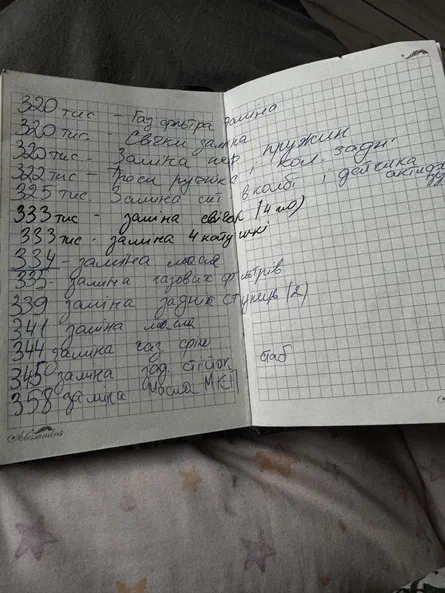 320 тис - Газ фільтра заміна
320 тис. Свєчи заміна
320 тис - Заміна пер. пружин
322 тис - Троси ручніка, кол. задні
325 тис. Заміна сит в колбі, датчика
333 тис - заміна свічок (4 шт)
333 тис. заміна 4 катушкі
334 - заміна масла
335 - заміна газових фільтрів
339 заміна задніх ступиць (2)
341 заміна масла
344 заміна газ фільт
345 заміна зад. стійок стаб
358 заміна масла МКПП